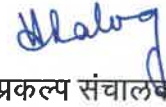 प्रकल्प संचालक